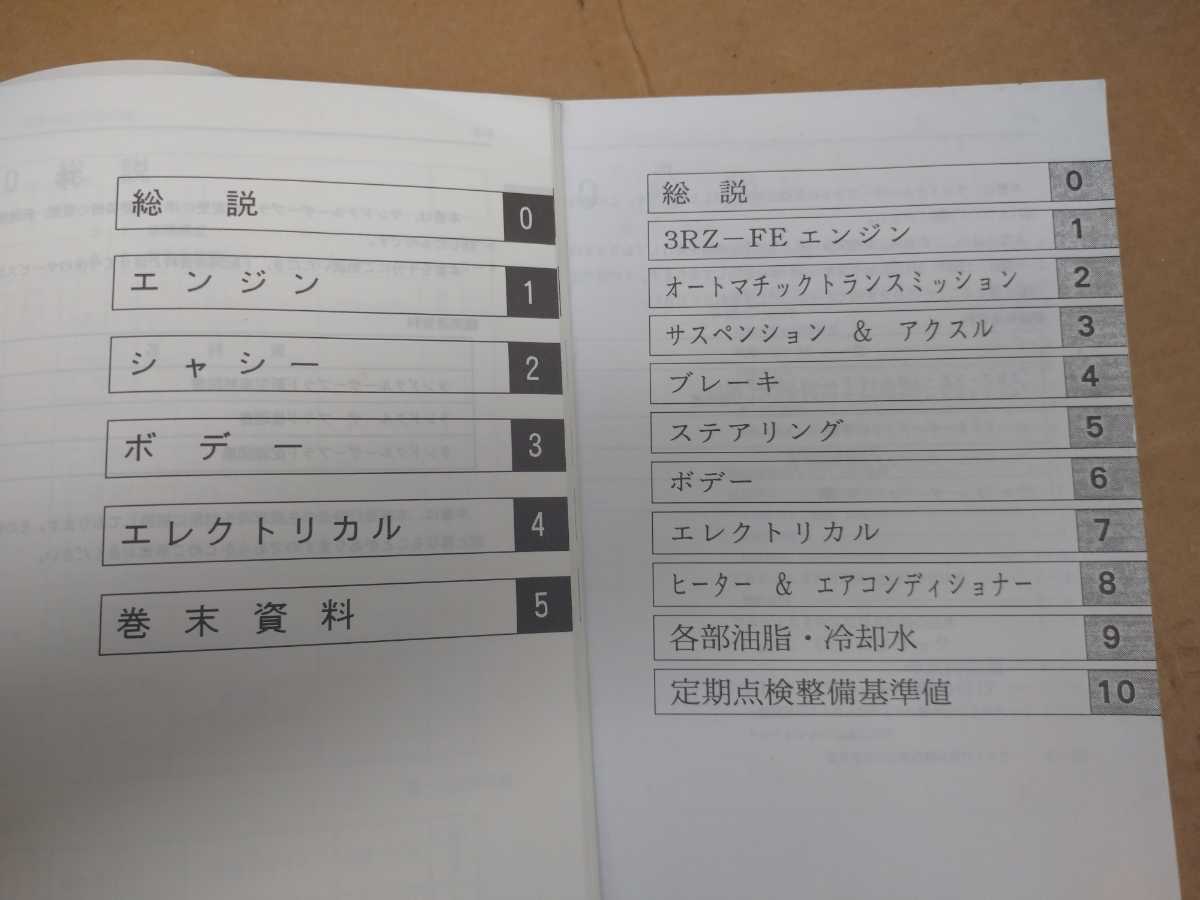 総 説 0
エンジン 1
シャシー 2
ボデー 3
エレクトリカル 4
巻末資料 5
総 説 0
3RZ－FE エンジン 1
オートマチックトランスミッション 2
サスペンション ＆ アクスル 3
ブレーキ 4
ステアリング 5
ボデー 6
エレクトリカル 7
ヒーター ＆ エアコンディショナー 8
各部油脂・冷却水 9
定期点検整備基準値 10